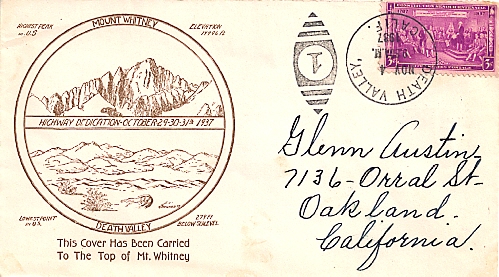 HIGHEST PEAK
IN U.S.
MOUNT WHITNEY
ELEVATION
HIGHWAY DEDICATION-OCTOBER 29-30-31st 1937
LOWEST POINT
IN U.S.
DEATH VALLEY
BELOW SEA LEVEL
This Cover Has Been Carried
To The Top of Mt. Whitney
1
DEATH VALLEY,
CALIF.
NOV 4
1937
3¢
3¢
Glenn Austin,
7136-Orral St-
Oakland.
California.